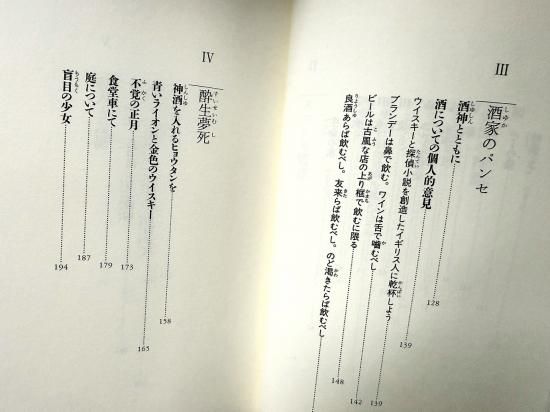 Ⅲ
酒家のパンセ
酒神とともに……128
酒についての個人的意見……139
ウイスキーと探偵小説を創造したイギリス人に乾杯しよう……139
ブランデーは鼻で飲む。ワインは舌で噛むべし……142
ビールは古風な店の上り框で飲むに限る……148
良酒あらば飲むべし。友来らば飲むべし。のど渇きたらば飲むべし……
Ⅳ
酔生夢死
神酒を入れるヒョウタンを……158
青いライオンと金色のウイスキー……165
不覚の正月……173
食堂車にて……179
庭について……187
盲目の少女……194